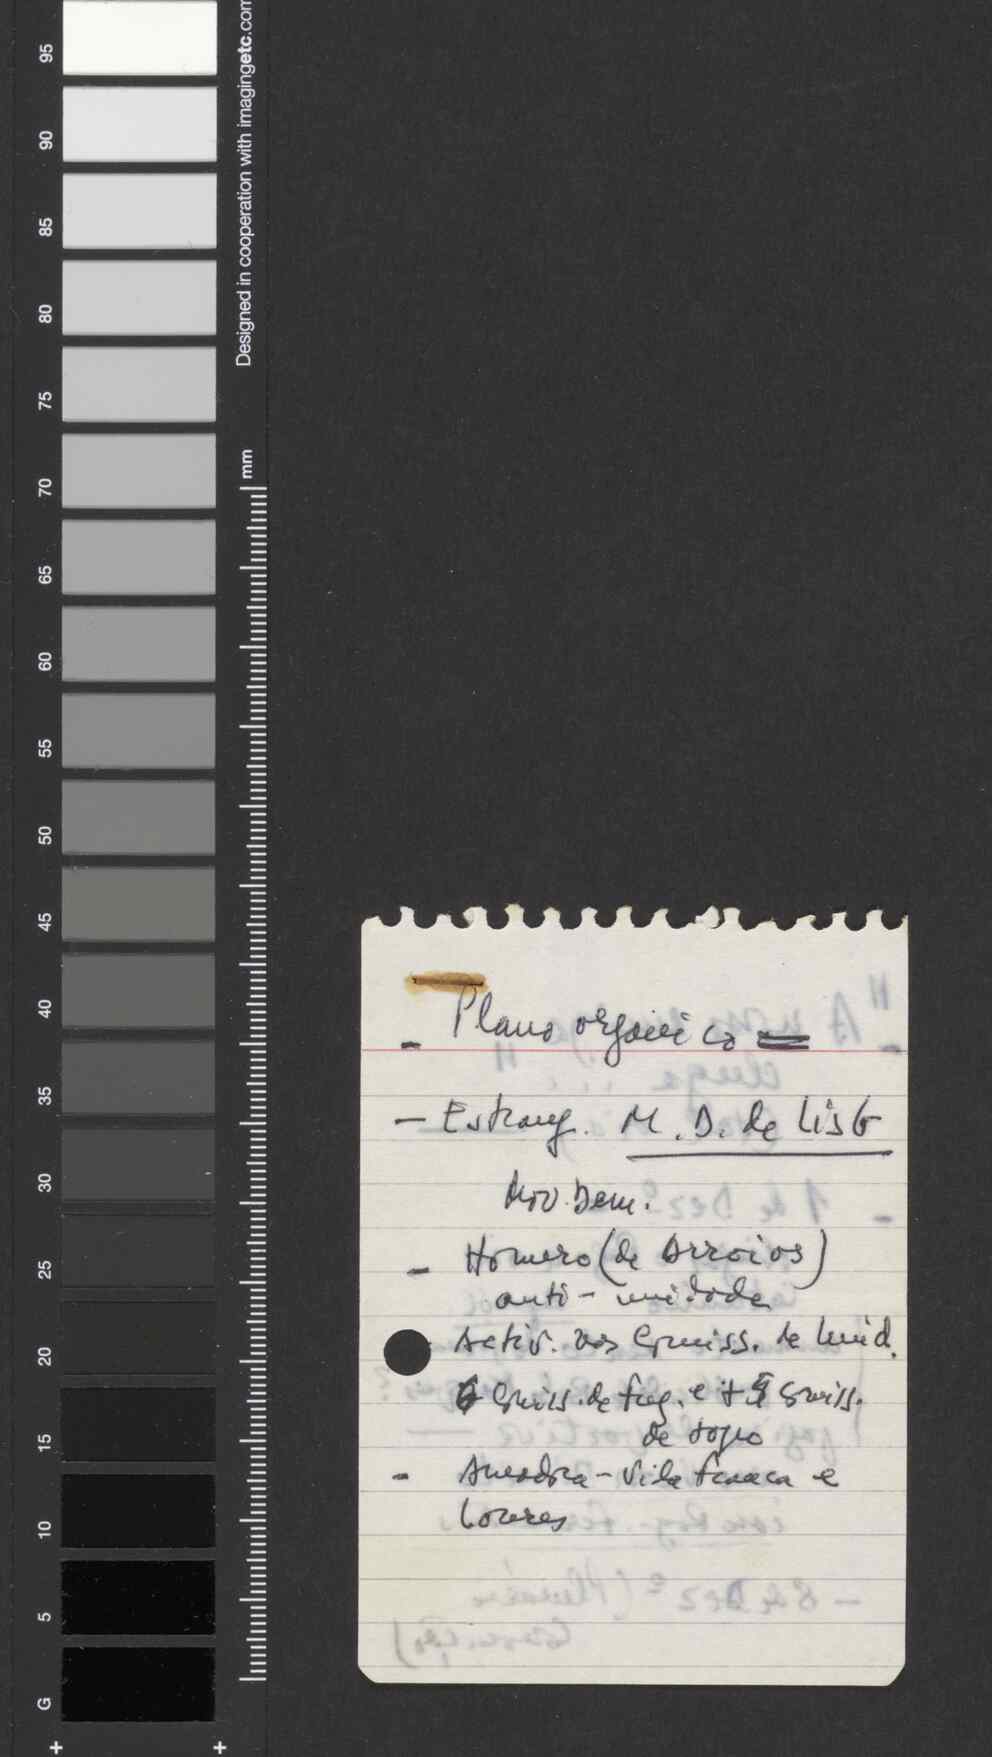 95
90
85
80
75
70
65
60
55
50
45
40
35
30
25
20
15
10
5
G
Designed in cooperation with imagingetc.com
mm
- Plano orgânico
- Estrang. M. D. de Lisb
Mov. Dem.
- Homero (de Arroios)
anti-unidade
Activ. das Comiss. de Unid.
6 Comiss. de freg. e + 5 Comiss.
de
- Amadora - Vila Franca e
Loures